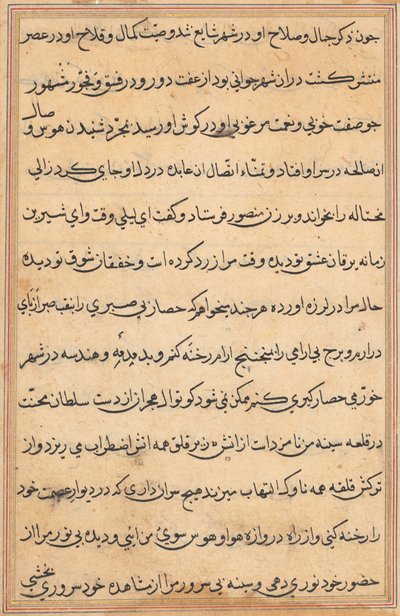 چون ذکر جمال و صلاح او در شهر شایع شد و صیت کمال و فلاح او در عصر
منتشر گشت در ان شهر جوانی بود از عفت دور و در فسق و فجور مشهور
چو صفت خوبی و نعت مرغوبی او در گوش او رسید بمجرد شنیدن هوس وصال
ان صالحه در سر او افتاد و تمناء اتصال ان عابده در دل او جای کرد زالی
محتاله را بخواند و بر زن منصور فرستاد و گفت ای لیلی وقت و ای شیرین
زمانه یرقان عشق تو دیده وقت مرا زرد کرده است و خفقان شوق تو دیده
حال مرا در لرزه اورده هر چند میخواهم که حصار بی صبری را بنقب صبر از پای
در ارم و برج بی ارامی را بمنجنیج ارام رخنه کنم و بدمدمه و هندسه در شهر
خوزمی حصار کبری کنم ممکن نمی شود کوتوال هجر از از دست سلطان محنت
در قلعه سینه من نامزد است از اتش زنبر قلق همه اتش اضطراب می ریزد و از
ترکش قلقه همه ناوک التهاب میزند هیچ سر ان داری که در دیوار عصمت خود
را رخنه کنی و از راه دروازه هوا و هوس سوی من ایی و دیده بی نور مرا از
حضور خود نوری دهی و سینه بی سرور مرا از مشاهده خود سروری بخشی